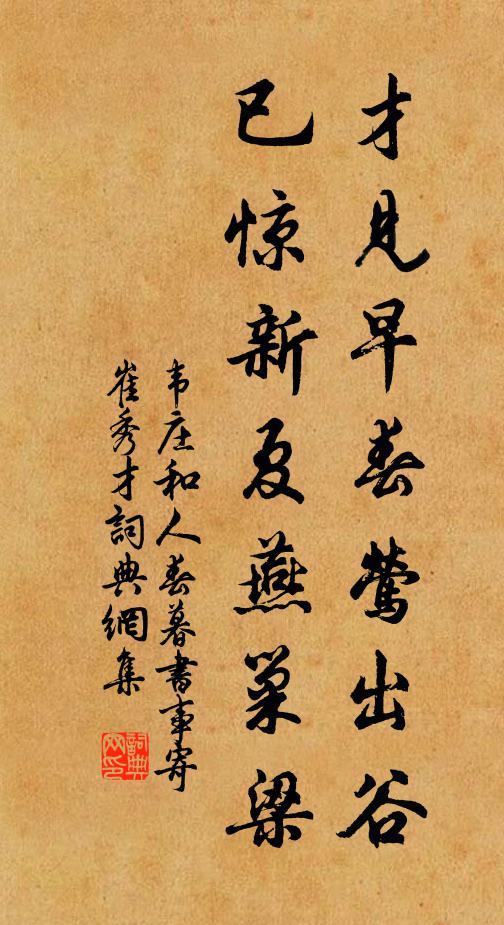 才见早春莺出谷
已惊新夏燕巢梁
韦庄和人春暮书事寄
崔秀才詞典網集
詞典网印